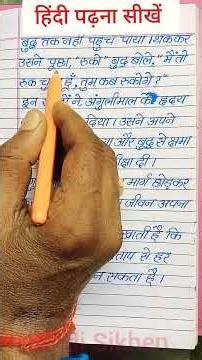 हिंदी पढ़ना सीखें
बुद्ध तक नहीं पहुंच पाया। थककर
उसने पूछा, "रुको" बुद्ध बोले, "मैं तो
रुक हूँ, तुम कब रुकोगे?"
इन ने, अंगुलीमाल का हृदय
दिया। उसने अपने
और बुद्ध से क्षमा
दी।
मार्ग छोड़कर
जीवन अपना
है कि
से हर
सकता है।
Sikhen